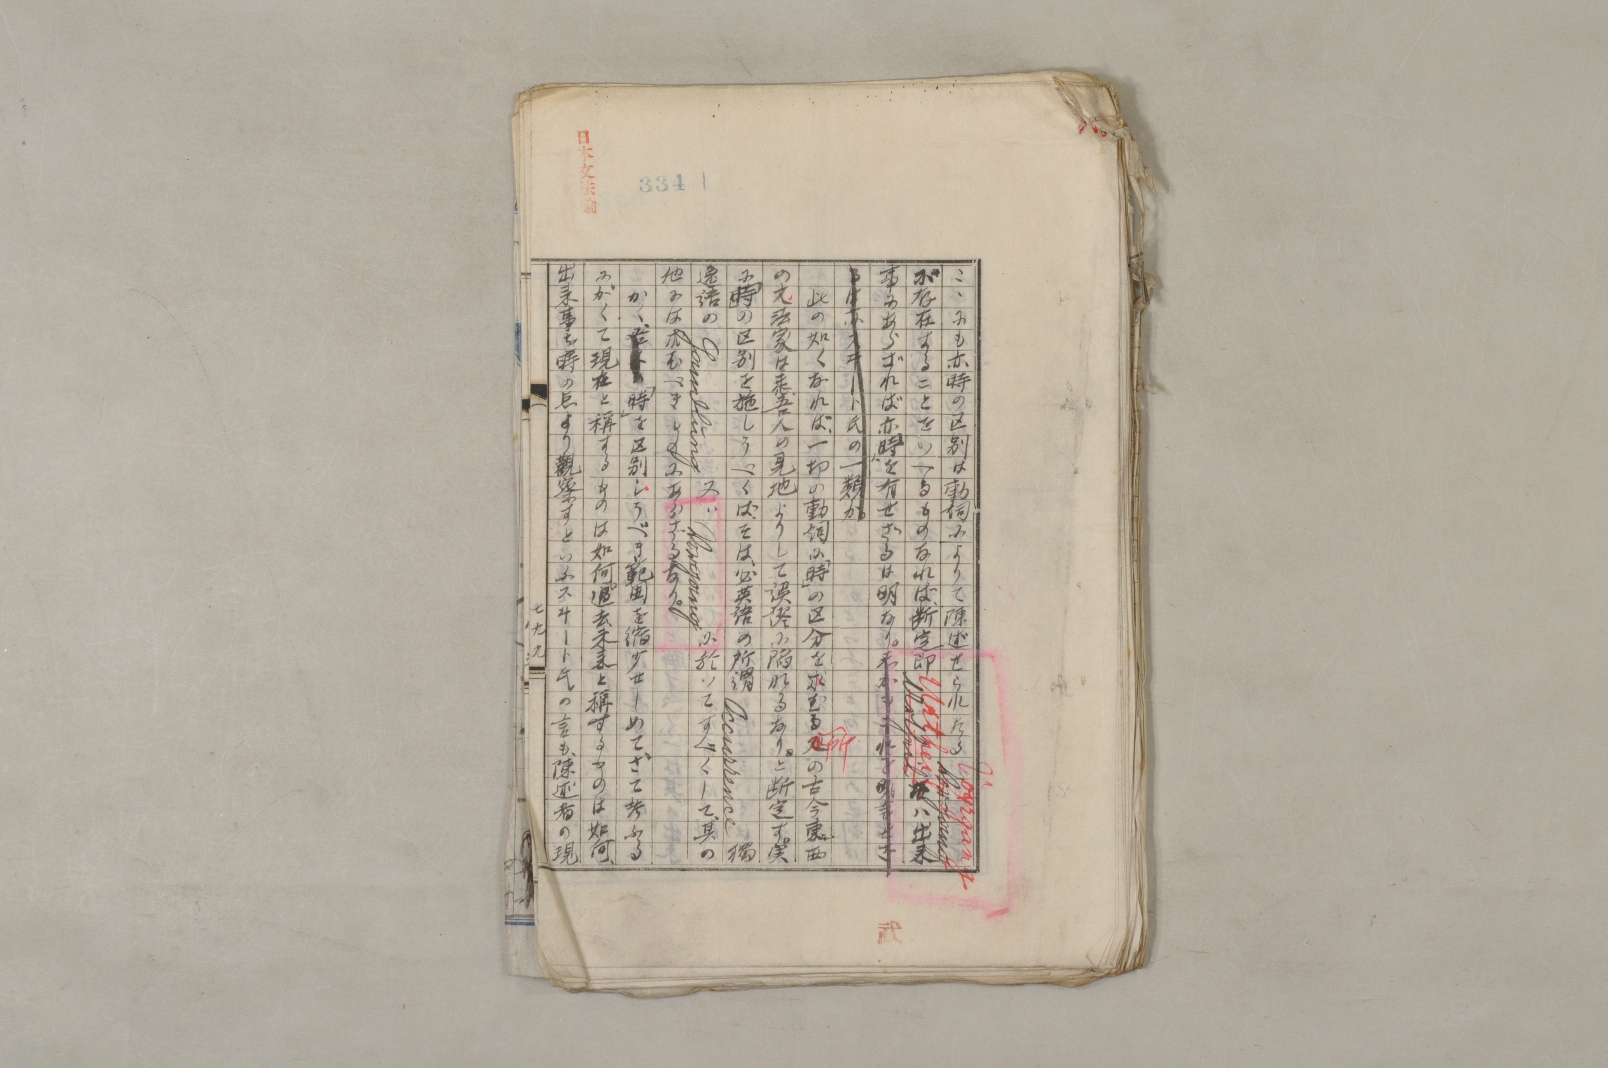 日本文法論
334
こゝにも亦時の区別は動詞によりて陳述せられたる Vorgang
が存在することをいへるものなれば断定即 Urtheil は出来
事にあらざれば亦「時」を有せざるは明なり。
スヰート氏の一類か
此の如くなれば、一切の動詞に「時」の区分を求むる所の古今東西
の文法家は悉吾人の見地よりして誤謬に陥れるなりと断定す。実
に「時」の区別を施しうべくば、そは、必英語の所謂 Occurrence 独
逸語の Handlung 又は Vorgang に於いてすべくして、其の
他には求むべきものにあらざるなり。
かく「時」を区別しうべき範囲を縮少せしめて、さて考ふる
にかくて現在と称するものは如何、過去未来と称するものは如何、
出来事を時の点より観察すといふスヰート氏の言も、陳述者の現
七九九